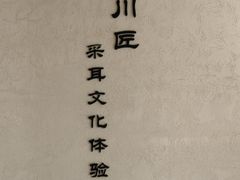 川匠
采耳文化体验